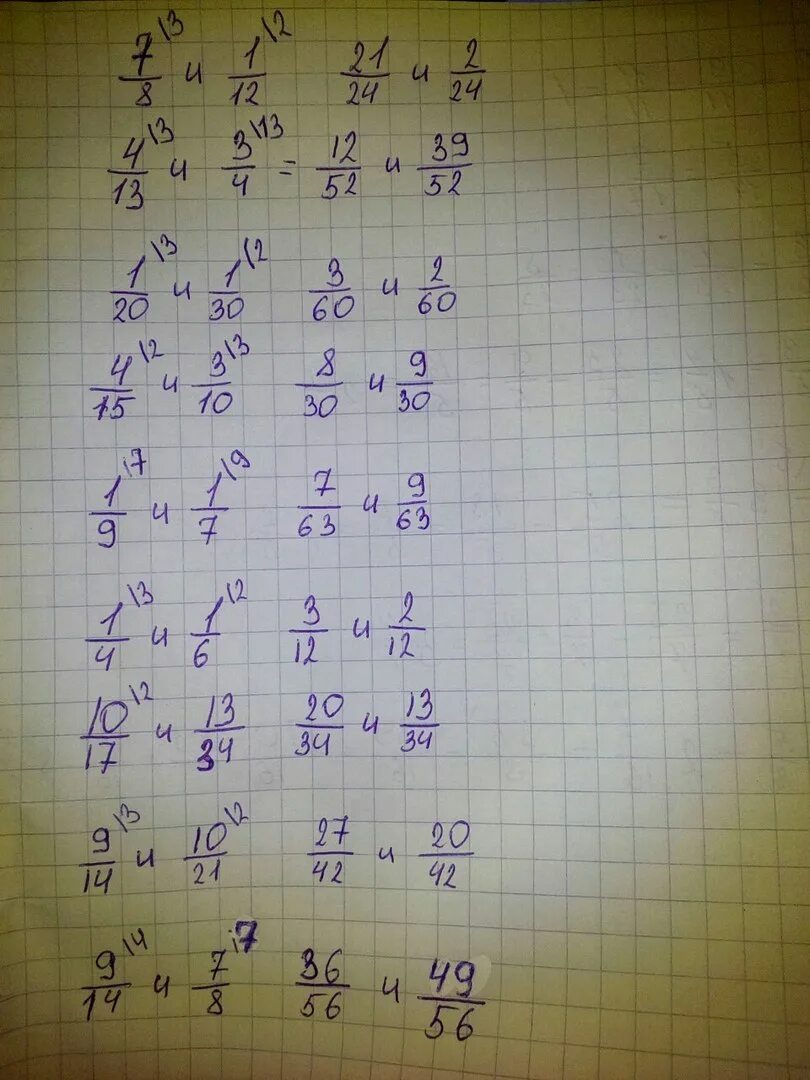 7/8 \3 и 1/12 \2 21/24 и 2/24
4/13 \3 и 3/4 \13 = 12/52 и 39/52
1/20 \3 и 1/30 \2 3/60 и 2/60
4/15 \2 и 3/10 \3 8/30 и 9/30
1/9 \7 и 1/7 \9 7/63 и 9/63
1/4 \3 и 1/6 \2 3/12 и 2/12
10/17 \2 и 13/34 20/34 и 13/34
9/14 \3 и 10/21 \2 27/42 и 20/42
9/14 \4 и 7/8 \7 36/56 и 49/56